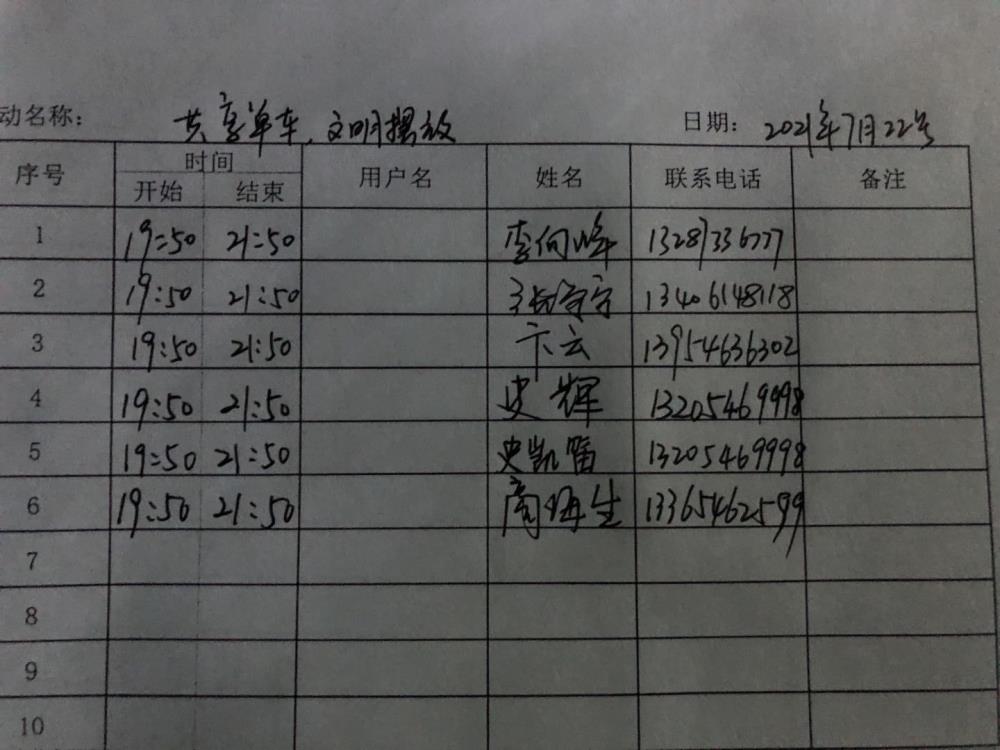 动名称： 共享单车，文明摆放 日期： 2021年7月22号
序号 时间 用户名 姓名 联系电话 备注
开始 结束
1 19:50 21:50 李向峰 13287336777
2 19:50 21:50 13406148118
3 19:50 21:50 卞云 13954636302
4 19:50 21:50 史辉 13205469998
5 19:50 21:50 史凯 13205469998
6 19:50 21:50 商 生 13365462599
7
8
9
10